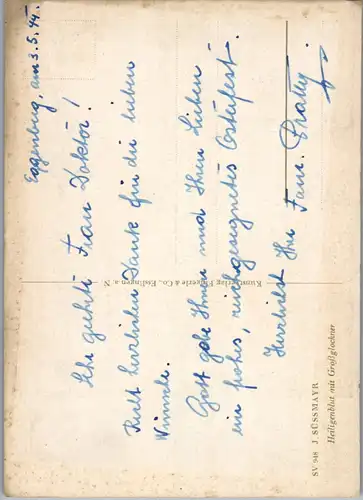 Eggenburg, am 3.5.44.
Sehr geehrte Frau Doktor!
Recht herzlichen Dank für die lieben
Wünsche.
Gott gebe Ihnen und Ihren Lieben
ein frohes, reichgesegnetes Osterfest.
Herzlichst Ihre Fam.
Kunstverlag Fingerle & Co., Esslingen a. N.
SV 948 J. SÜSSMAYR
Heiligenblut mit Großglockner